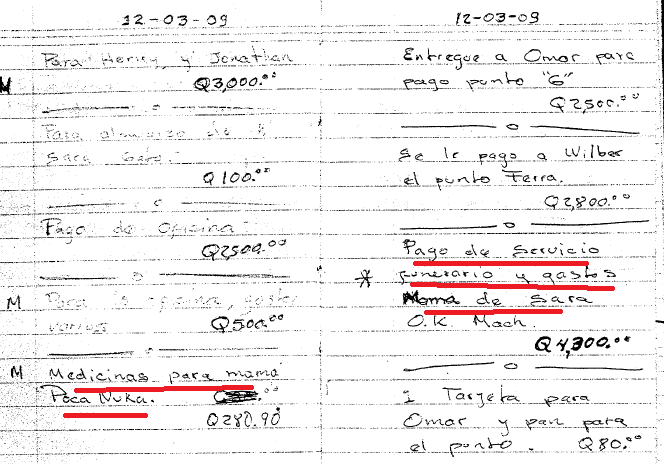 12-03-09
Para Henry, y Jonathan
M
Q3,000.00
Para almuerzo de
Sara
Q100.00
Pago de oficina
Q2,500.00
M Para la oficina, gastos
varios
Q500.00
M Medicinas para mama
Poca Nuka.
Q280.90
12-03-09
Entregue a Omar para
pago punto "6"
Q2,500.00
Se le pago a Wilber
el punto Ferra.
Q2,800.00
Pago de servicio
* funerario y gastos
Mama de Sara
O.K. Mach.
Q4,300.00
1 Tarjeta para
Omar y pan para
el punto. Q80.00